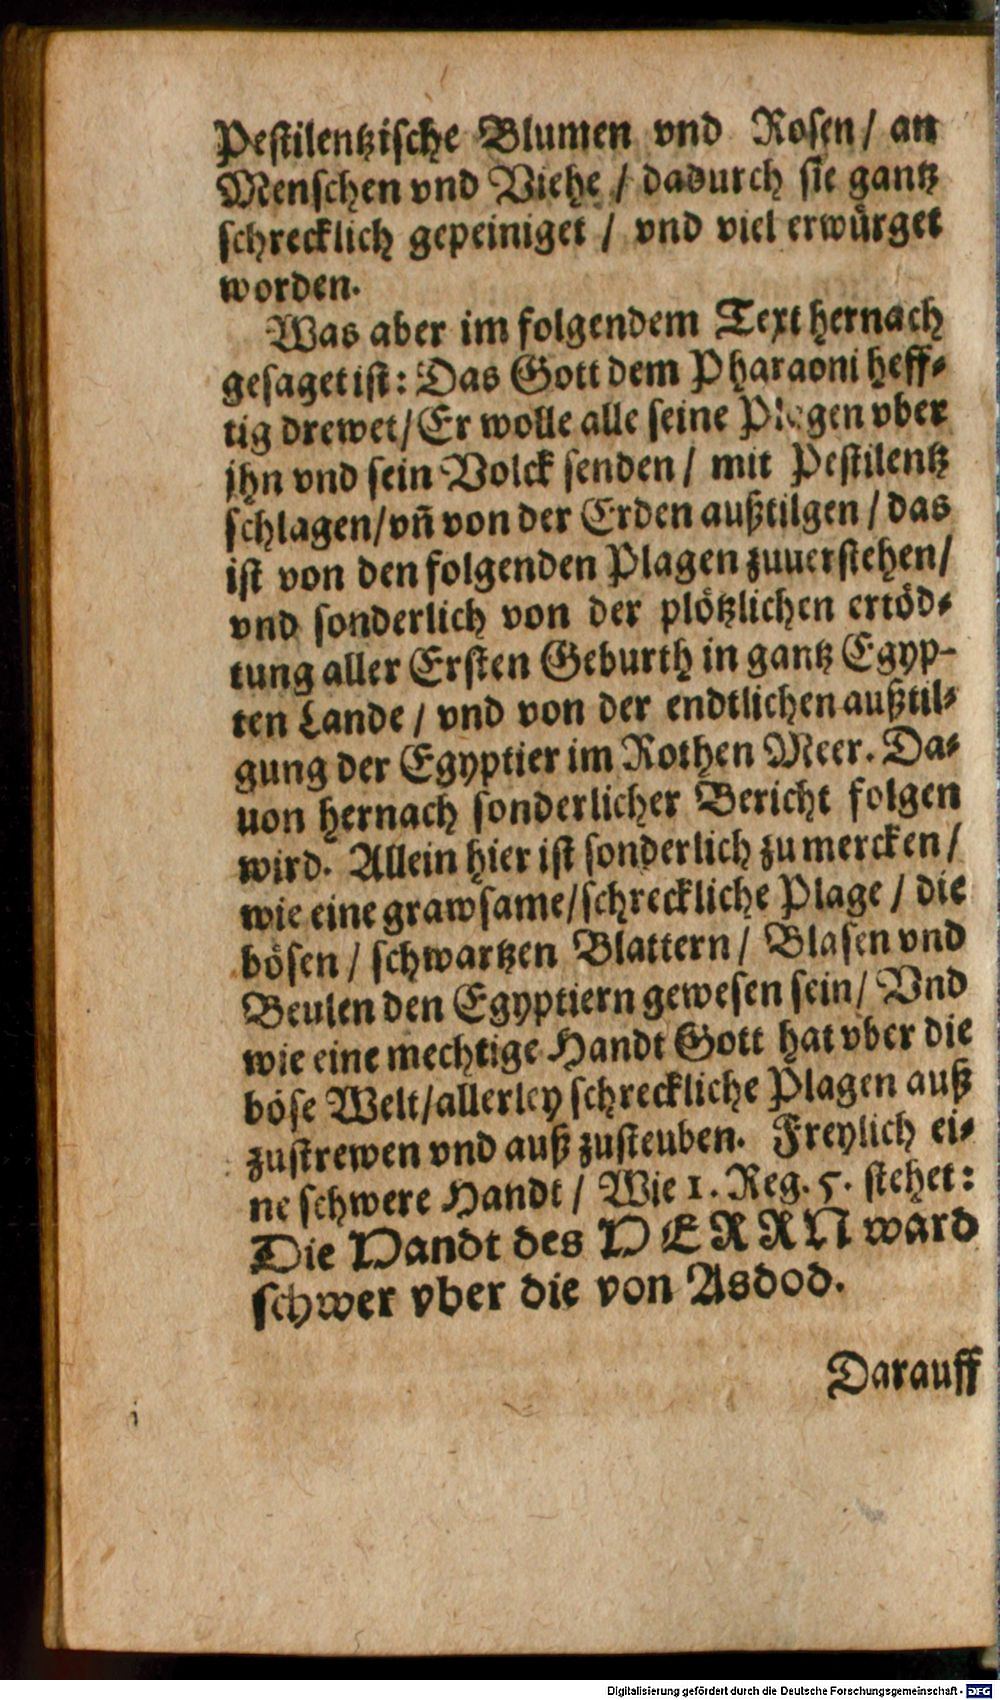 Pestilentzische Blumen vnd Rosen / an
Menschen vnd Viehe / dadurch sie gantz
schrecklich gepeiniget / vnd viel erwürget
worden.
Was aber im folgendem Text hernach
gesaget ist: Das Gott dem Pharaoni heff-
tig drewet/Er wolle alle seine Plagen vber
jhn vnd sein Volck senden / mit Pestilentz
schlagen/vñ von der Erden außtilgen / das
ist von den folgenden Plagen zuuerstehen/
vnd sonderlich von der plötzlichen ertöd-
tung aller Ersten Geburth in gantz Egyp-
ten Lande / vnd von der endtlichen außtil-
gung der Egyptier im Rothen Meer. Da-
uon hernach sonderlicher Bericht folgen
wird. Allein hier ist sonderlich zu mercken /
wie eine grawsame/schreckliche Plage / die
bösen / schwartzen Blattern / Blasen vnd
Beulen den Egyptiern gewesen sein/ Vnd
wie eine mechtige Handt Gott hat vber die
böse Welt/allerley schreckliche Plagen auß
zustrewen vnd auß zusteuben. Freylich ei-
ne schwere Handt / Wie 1. Reg. 5. stehet:
Die Handt des HERRN ward
schwer vber die von Asdod.
Darauff
Digitalisierung gefördert durch die Deutsche Forschungsgemeinschaft - DFG